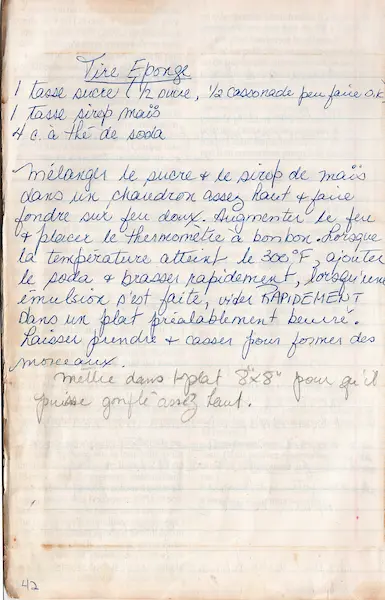 Tire Éponge
1 tasse sucre (½ sucre, ½ cassonade peu faire o.k
1 tasse sirop maïs
4 c. à thé de soda
Mélanger le sucre + le sirop de maïs
dans un chaudron assez haut & faire
fondre sur feu doux. Augmenter le feu
& placer le thermomètre à bonbon. Lorsque
la température atteint le 300°F, ajouter
le soda & brasser rapidement, lorsqu'une
émulsion s'est faite, vider RAPIDEMENT
dans un plat préalablement beurré.
Laisser prendre & casser pour former des
morceaux.
Mettre dans plat 8"x8" pour qu'il
puisse gonflé assez haut.
42